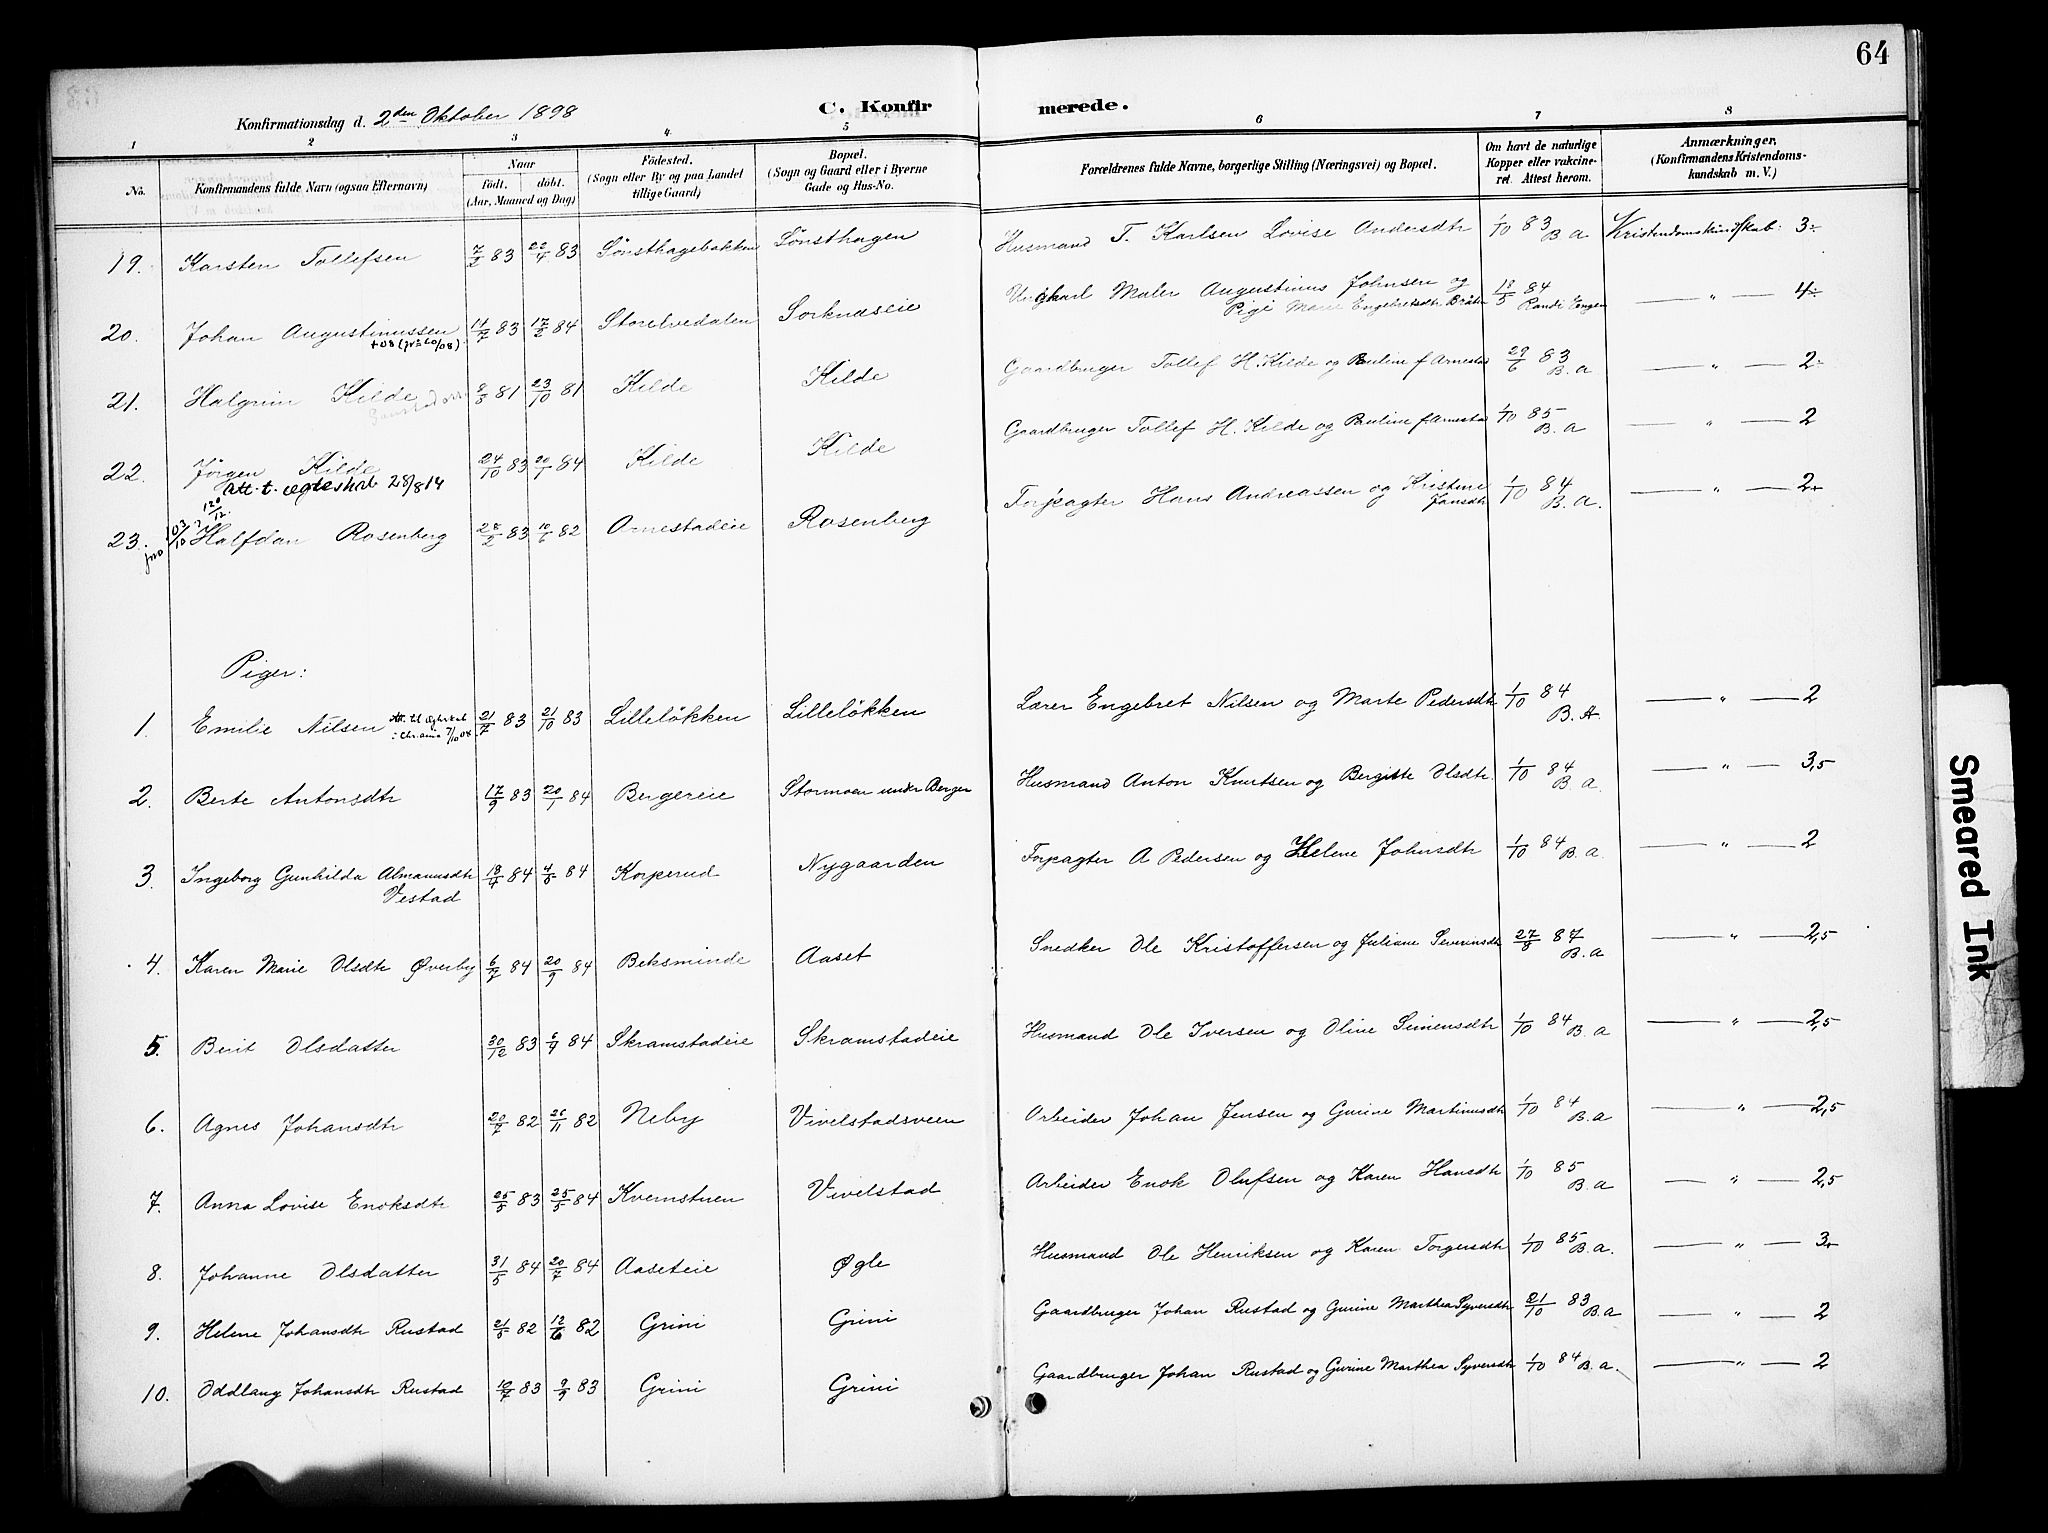 64
Konfirmationsdag d. 2den Oktober 1898
C. Konfirmerede.
1 2 3 4 5 6 7 8
No.
Konfirmandens fulde Navn (ogsaa Efternavn)
Naar
født. døbt.
(Aar, Maaned og Dag)
Fødested.
(Sogn eller By og paa Landet
tillige Gaard)
Bopæl.
(Sogn og Gaard eller i Byerne
Gade og Hus-No.
Forældrenes fulde Navne, borgerlige Stilling (Næringsvei) og Bopæl.
Om havt de naturlige
Kopper eller vakcine-
ret. Attest herom.
Anmærkninger,
(Konfirmandens Kristendoms-
kundskab m. V.)
19. Karsten Tollefsen 7/2 83 22/4 83 Sønsthagebakken Sønsthagen Husmand T. Karlsen Lovise Andersdtr 1/10 83 B a Kristendomskundskab: 3÷
20. Johan Augustinussen 11/7 83 17/2 84 Storelvedalen Sorknæseie Ungkarl Maler Augustinus Johnsen og 18/5 84 — " — 4÷
+08 (jno 60/08). Pige Marie Engebretsdtr Bråten Randi Engen
21. Halgrim Kilde 8/3 81 23/10 81 Kilde Kilde Gaardbruger Tollef H. Kilde og Pauline f Arnestad 29/6 83 B. a — " — 2÷
22. Jörgen Kilde 24/10 83 20/1 84 Kilde Kilde Gaardbruger Tollef H. Kilde og Pauline f Arnestad 1/10 85 B. a — " — 2
Att. t. ægteskab 28/8 14
23. Halfdan Rosenberg 28/2 83 10/6 82 Ornestadeie Rosenberg Forpagter Hans Andreassen og Kristine 1/10 84 B. a. — " — 2+
jno 103/10 Jansdtr
Piger:
1. Emilie Nilsen 21/7 83 21/10 83 Lilleløkken Lilleløkken Lærer Engebret Nilsen og Marte Pedersdtr 1/10 84 B. A. — " — 2
Att. til ægteskab
Chr.ania 7/10 08.
2. Berte Antonsdtr 17/9 83 20/1 84 Bergereie Stormoen under Berger Husmand Anton Knutsen og Bergitte Olsdtr. 1/10 84 B. a. — " — 3,5
3. Ingeborg Gunhilda Almanusdtr 13/4 84 4/5 84 Korperud Nygaarden Forpagter A Pedersen og Helene Johnsdtr 1/10 84 B. a. — " — 2
Vestad
4. Karen Marie Olsdtr Øverby 6/7 84 20/9 84 Beksminde Aaset Snedker Ole Kristoffersen og Juliane Severinsdtr 27/8 87 B. a — " — 2,5
5. Berit Olsdatter 30/12 83 6/9 84 Skramstadeie Skramstadeie Husmand Ole Iversen og Oline Simensdtr 1/10 84 B. a — " — 2,5
6. Agnes Johansdtr 20/7 82 26/11 82 Neby Vivelstadsveen Arbeider Johan Jensen og Gurine Martinusdtr 1/10 84 B. a — " — 2,5
7. Anna Lovise Enoksdtr 25/5 83 25/5 84 Kvernstuen Vivelstad Arbeider Enok Olufsen og Karen Hansdtr 1/10 85 B. a — " — 2,5
8. Johanne Olsdatter 31/5 84 20/7 84 Aaseteie Øgle Husmand Ole Henriksen og Karen Torgersdtr 1/10 85 B. a. — " — 3+
9. Helene Johansdtr Rustad 21/5 82 12/6 82 Grini Grini Gaardbruger Johan Rustad og Gurine Marthea Syversdtr 21/10 83 B. a — " — 2
10. Oddlaug Johansdtr Rustad 10/7 83 9/9 83 Grini Grini Gaardbruger Johan Rustad og Gurine Marthea Syversdtr 1/10 84 B. a. — " — 2
Smeared Ink